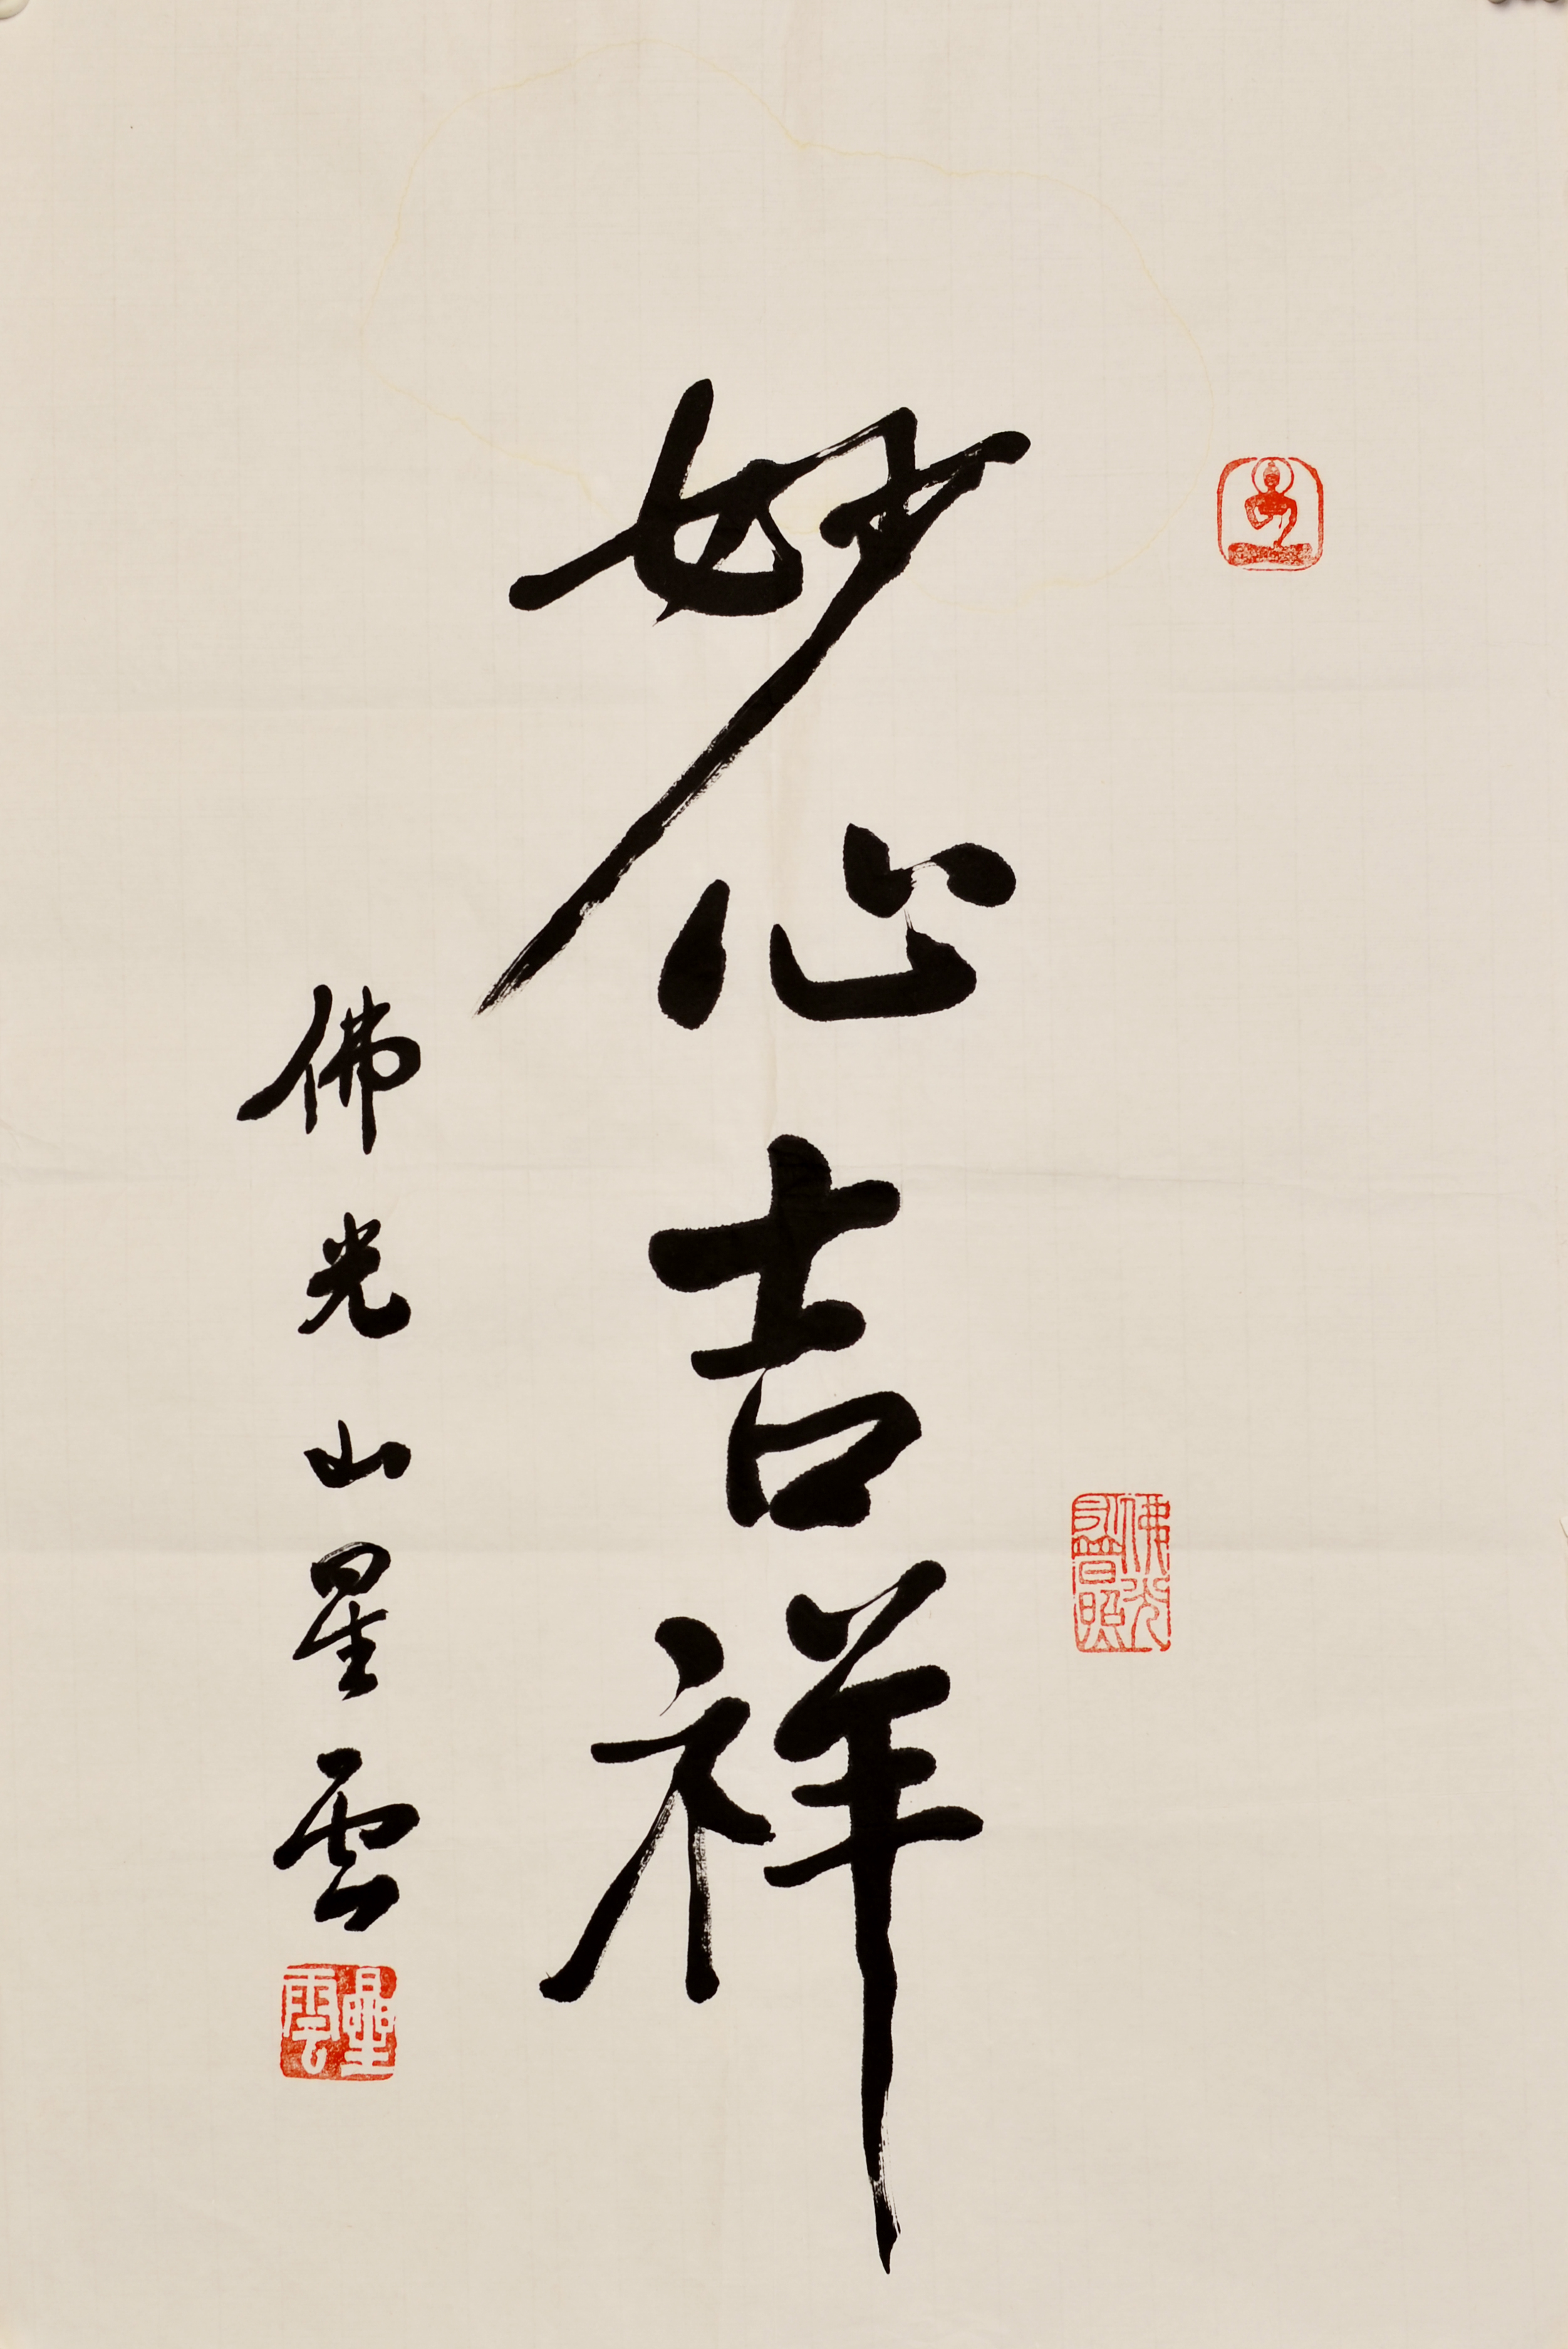 妙心吉祥
佛光普照
佛光山星雲
星雲